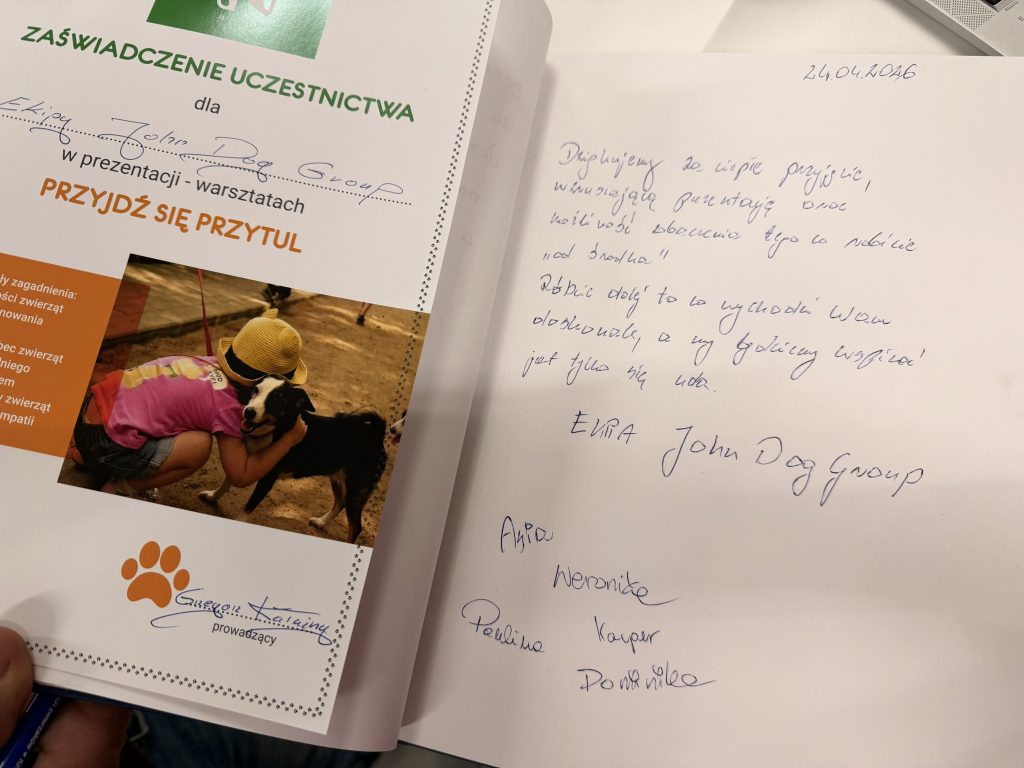 ZAŚWIADCZENIE UCZESTNICTWA
dla
Ekipy John Dog Group
w prezentacji - warsztatach
PRZYJDŹ SIĘ PRZYTUL
ły zagadnienia:
ości zwierząt
nowania
pec zwierząt
dniego
em
y zwierząt
mpatii
prowadzący
24.04.2026
Dziękujemy za ciepłe przyjęcie,
wzruszającą prezentację oraz
możliwość zobaczenia tego co robicie
„od środka"
Róbcie dalej to co wychodzi Wam
doskonale, a my będziemy wspierać
jak tylko się uda.
EKIPA John Dog Group
Ania
Weronika
Paulina Kacper
Dominika